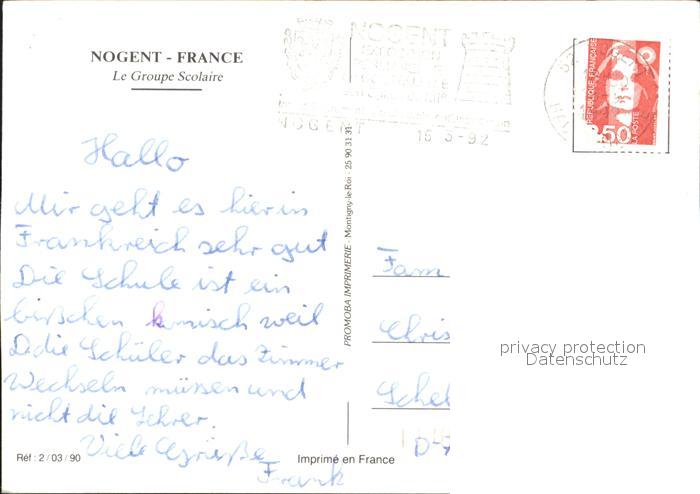 NOGENT - FRANCE
Le Groupe Scolaire
NOGENT
NOGENT
16 3-92
REPUBLIQUE FRANÇAISE
2,50
LA POSTE
Hallo
Mir geht es hier in
Frankreich sehr gut
Die Schule ist ein
bißchen komisch weil
Ddie Schüler das Zimmer
Wechseln müssen und
nicht die Lehrer.
Viele Grüße
Frank
Réf : 2 / 03 / 90
PROMOBA IMPRIMERIE - Montigny-le-Roi - 25 90 31 31
Imprimé en France
Fam
Chris
Schel
D-7
privacy protection
Datenschutz